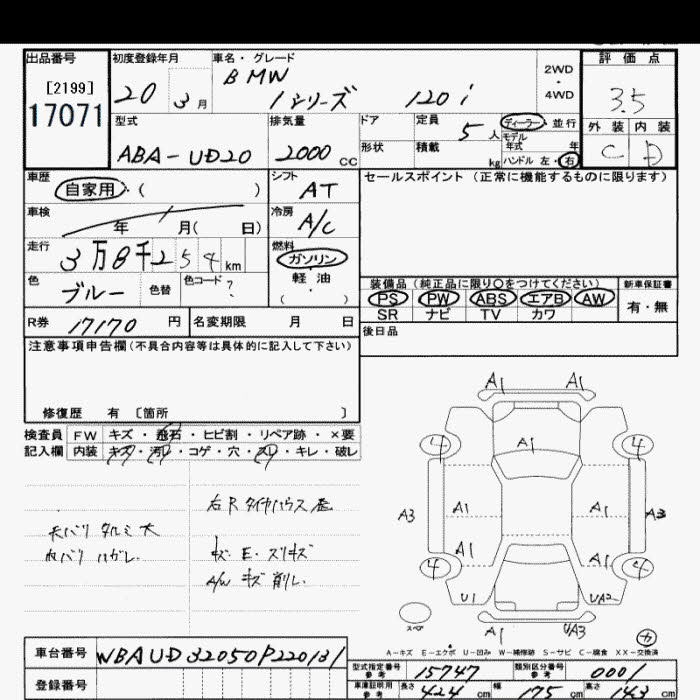 出品番号 初度登録年月 車名・グレード 評価点
[2199]
17071
20 3月 BMW 1シリーズ 120i 2WD・4WD 3.5
型式 排気量 ドア 定員 5人 ディーラー・並行 外装 内装
ABA-UD20 2000cc 形状 積載 kg モデル年式 年 C D
ハンドル 左・右
車歴 自家用・( ) シフト AT セールスポイント(正常に機能するものに限ります)
車検 年 月( 日) 冷房 A/C
走行 3万8千254km 燃料 ガソリン・軽油・( )
色 ブルー 色替 色コード ? 装備品(純正品に限り○をつけてください) 新車保証書
PS PW ABS エアB AW 有・無
SR ナビ TV カワ
R券 17170円 名変期限 月 日 後日品
注意事項申告欄(不具合内容等は具体的に記入して下さい)
修復歴 有〔箇所 〕
検査員記入欄 FW キズ・飛石・ヒビ割・リペア跡・×要
内装 キズ・汚レ・コゲ・穴・スレ・キレ・破レ
天バリ タルミ 大
内バリ ハガレ
右Rタイヤハウス
キズ E・スリキズ
A/W キズ 削レ
A1 A1
4 A1 4
A3 A1 A1 A3
A1 A1
4 4
U1 UA2
スペア A1 UA3
A-キズ E-エクボ U-凹み W-補修跡 S-サビ C-腐食 XX-交換済
車台番号 WBAUD32050P220131
登録番号
型式指定番号 参考 15747 類別区分番号 参考 0001
車庫証明用 参考 長さ 424cm 幅 175cm 高さ 143cm